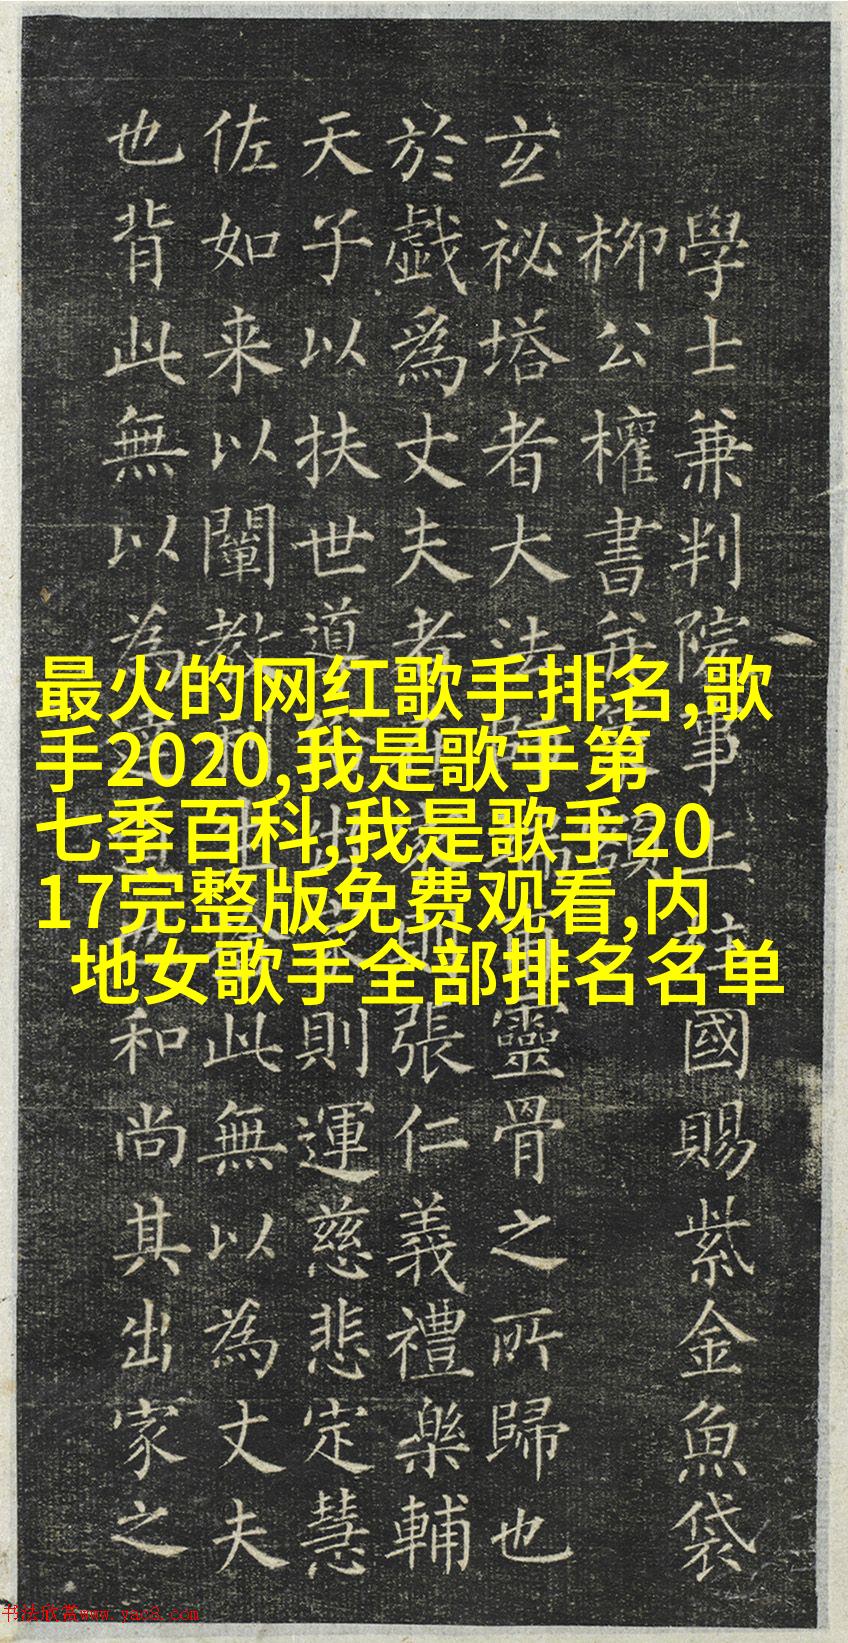 最火的网红歌手排名,歌
手2020,我是歌手第
七季百科,我是歌手20
17完整版免费观看,内
地女歌手全部排名名单
學士兼判院事上國賜紫金魚袋
柳公權書并額
玄祕塔者大法端靈骨之所歸也
於戲爲丈夫者張仁義禮樂輔
天子以扶世導則運慈悲定慧
佐如来以闡教利此無以為丈夫
也背此無以為和尚其出家之
书法欣赏www.yac8.com